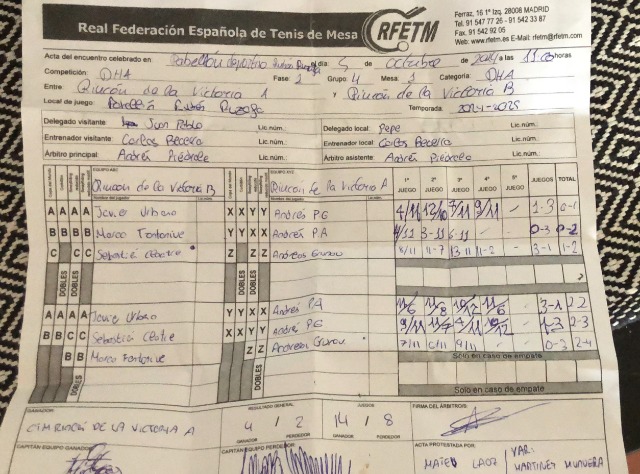 Real Federación Española de Tenis de Mesa
RFETM
Ferraz, 16 1º Izq. 28008 MADRID
Tel. 91 547 77 26 - 91 542 33 87
Fax. 91 542 92 05
Web: www.rfetm.es E-Mail: rfetm@rfetm.com
Acta del encuentro celebrado en el día 5 de octubre de a las horas
Competición: DHA Fase: Grupo: 4 Mesa: Categoría: DHA
Entre: Rincón de la Victoria A y Rincón de la Victoria B
Local de juego: Pabellón Rubén Ruzafa Temporada: 2024-2025
Delegado visitante: Juan Pablo Lic.núm.: Delegado local: Pepe Lic.núm.:
Entrenador visitante: Carlos Becerra Lic.núm.: Entrenador local: Carlos Becerra Lic.núm.:
Árbitro principal: Andrés Lic.núm.: Árbitro asistente: Andrés Lic.núm.:
EQUIPO ABC EQUIPO XYZ 1º 2º 3º 4º 5º JUEGOS TOTAL
Rincón de la Victoria B Rincón de la Victoria A JUEGO JUEGO JUEGO JUEGO JUEGO
A A A A Javier Urbano X X Y Y Andrés PG 4/11 12/10 7/11 9/11 - 1-3 0-1
B B B B Marco Y Y X X Andrés PA 4/11 3-11 6-11 - - 0-3 0-2
C C C Sebastián Z Z Andreas 11-2 - 3-1 1-2
DOBLES DOBLES DOBLES
A A A A Javier Urbano Y Y X X Andrés PA 11/6 11/8 10/12 11/6 - 3-1 2-2
B B C C Sebastián X X Y Y Andrés PG 9/11 10/12 - 1-3 2-3
B B Marco Z Z Andreas 7/11 6/11 9/11 - - 0-3 2-4
Sólo en caso de empate
DOBLES DOBLES
Sólo en caso de empate
GANADOR: RESULTADO GENERAL JUEGOS FIRMA DEL ÁRBITRO:
RINCÓN DE LA VICTORIA A 4 / 2 14 / 8
GANADOR PERDEDOR GANADOR PERDEDOR
CAPITÁN EQUIPO GANADOR CAPITÁN EQUIPO PERDEDOR ACTA PROTESTADA POR:
MATEO VAR:
MARTINEZ